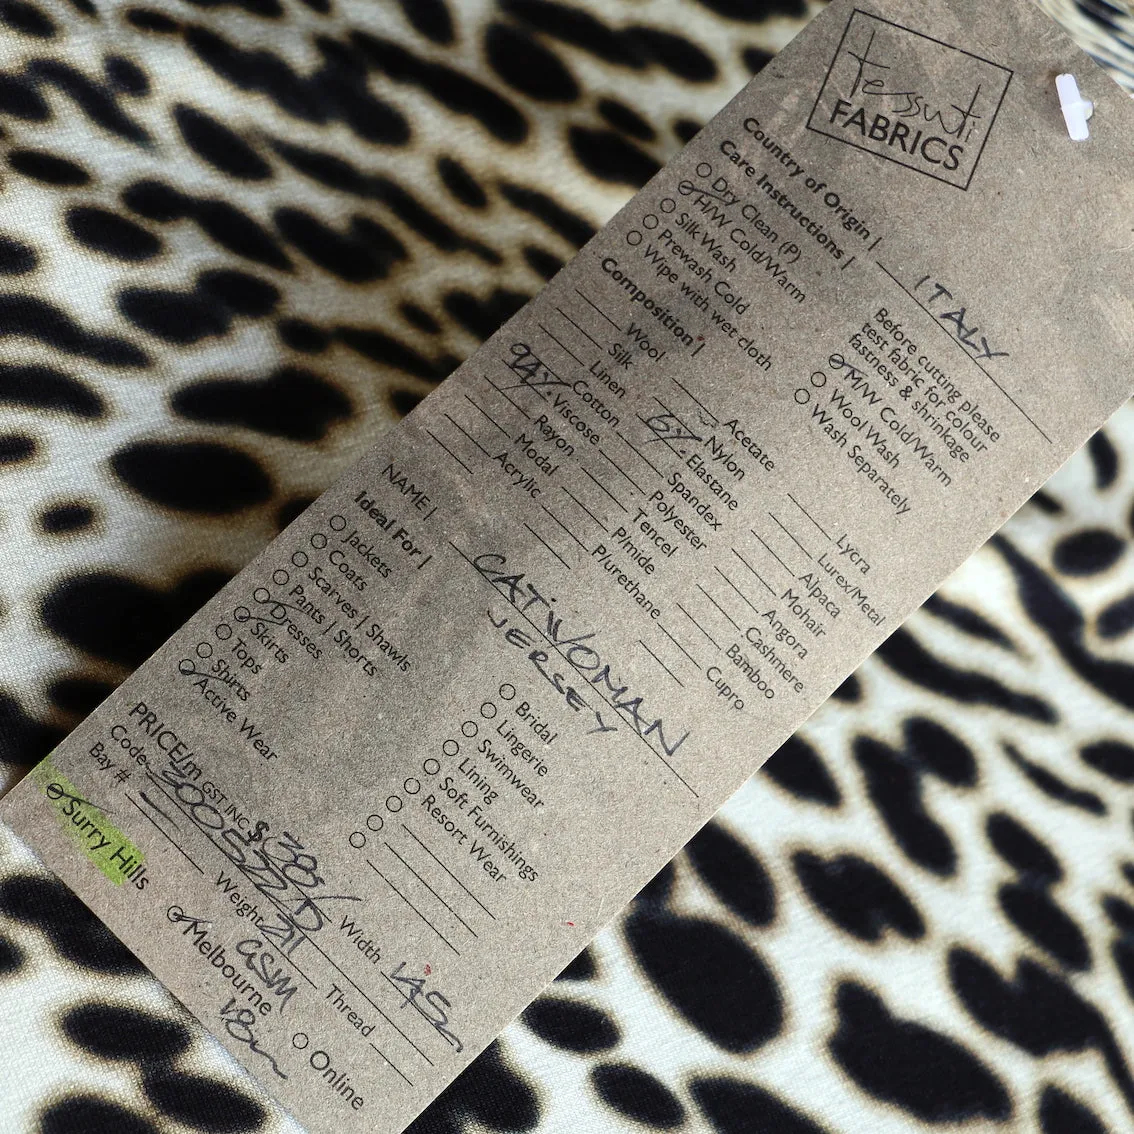 Tessuti
FABRICS
Country of Origin | ITALY
Care Instructions |
Dry Clean (P)
H/W Cold/Warm
Silk Wash
Prewash Cold
Wipe with wet cloth
Before cutting please
test fabric for colour
fastness & shrinkage
M/W Cold/Warm
Wool Wash
Wash Separately
Composition |
Wool
Silk
Linen
Cotton
94% Viscose
Rayon
Modal
Acrylic
Acetate
Nylon
6% Elastane
Spandex
Polyester
Tencel
P/mide
P/urethane
Lycra
Lurex/Metal
Alpaca
Mohair
Angora
Cashmere
Bamboo
Cupro
NAME | CATWOMAN
JERSEY
Ideal For |
Jackets
Coats
Scarves | Shawls
Pants | Shorts
Dresses
Skirts
Tops
Shirts
Active Wear
Bridal
Lingerie
Swimwear
Lining
Soft Furnishings
Resort Wear
PRICE/m GST INC $38/ Width
Code
Bay # Weight 211 Thread
GSM
Surry Hills
Melbourne
Online